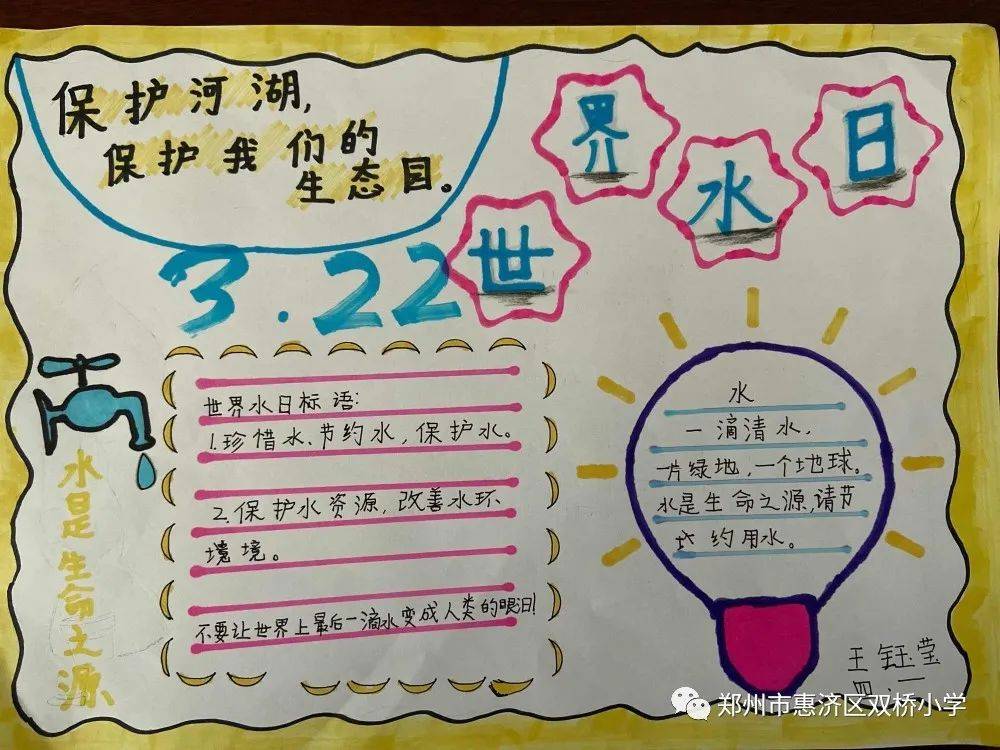 保护河湖,
保护我们的
生态目。
世界水日
3.22
世界水日标语:
1.珍惜水、节约水,保护水。
2.保护水资源,改善水环
境。
不要让世界上最后一滴水变成人类的眼泪!
水
一滴清水,
片绿地,一个地球。
水是生命之源,请节
约用水。
水是生命之源
王钰莹
四.一
郑州市惠济区双桥小学